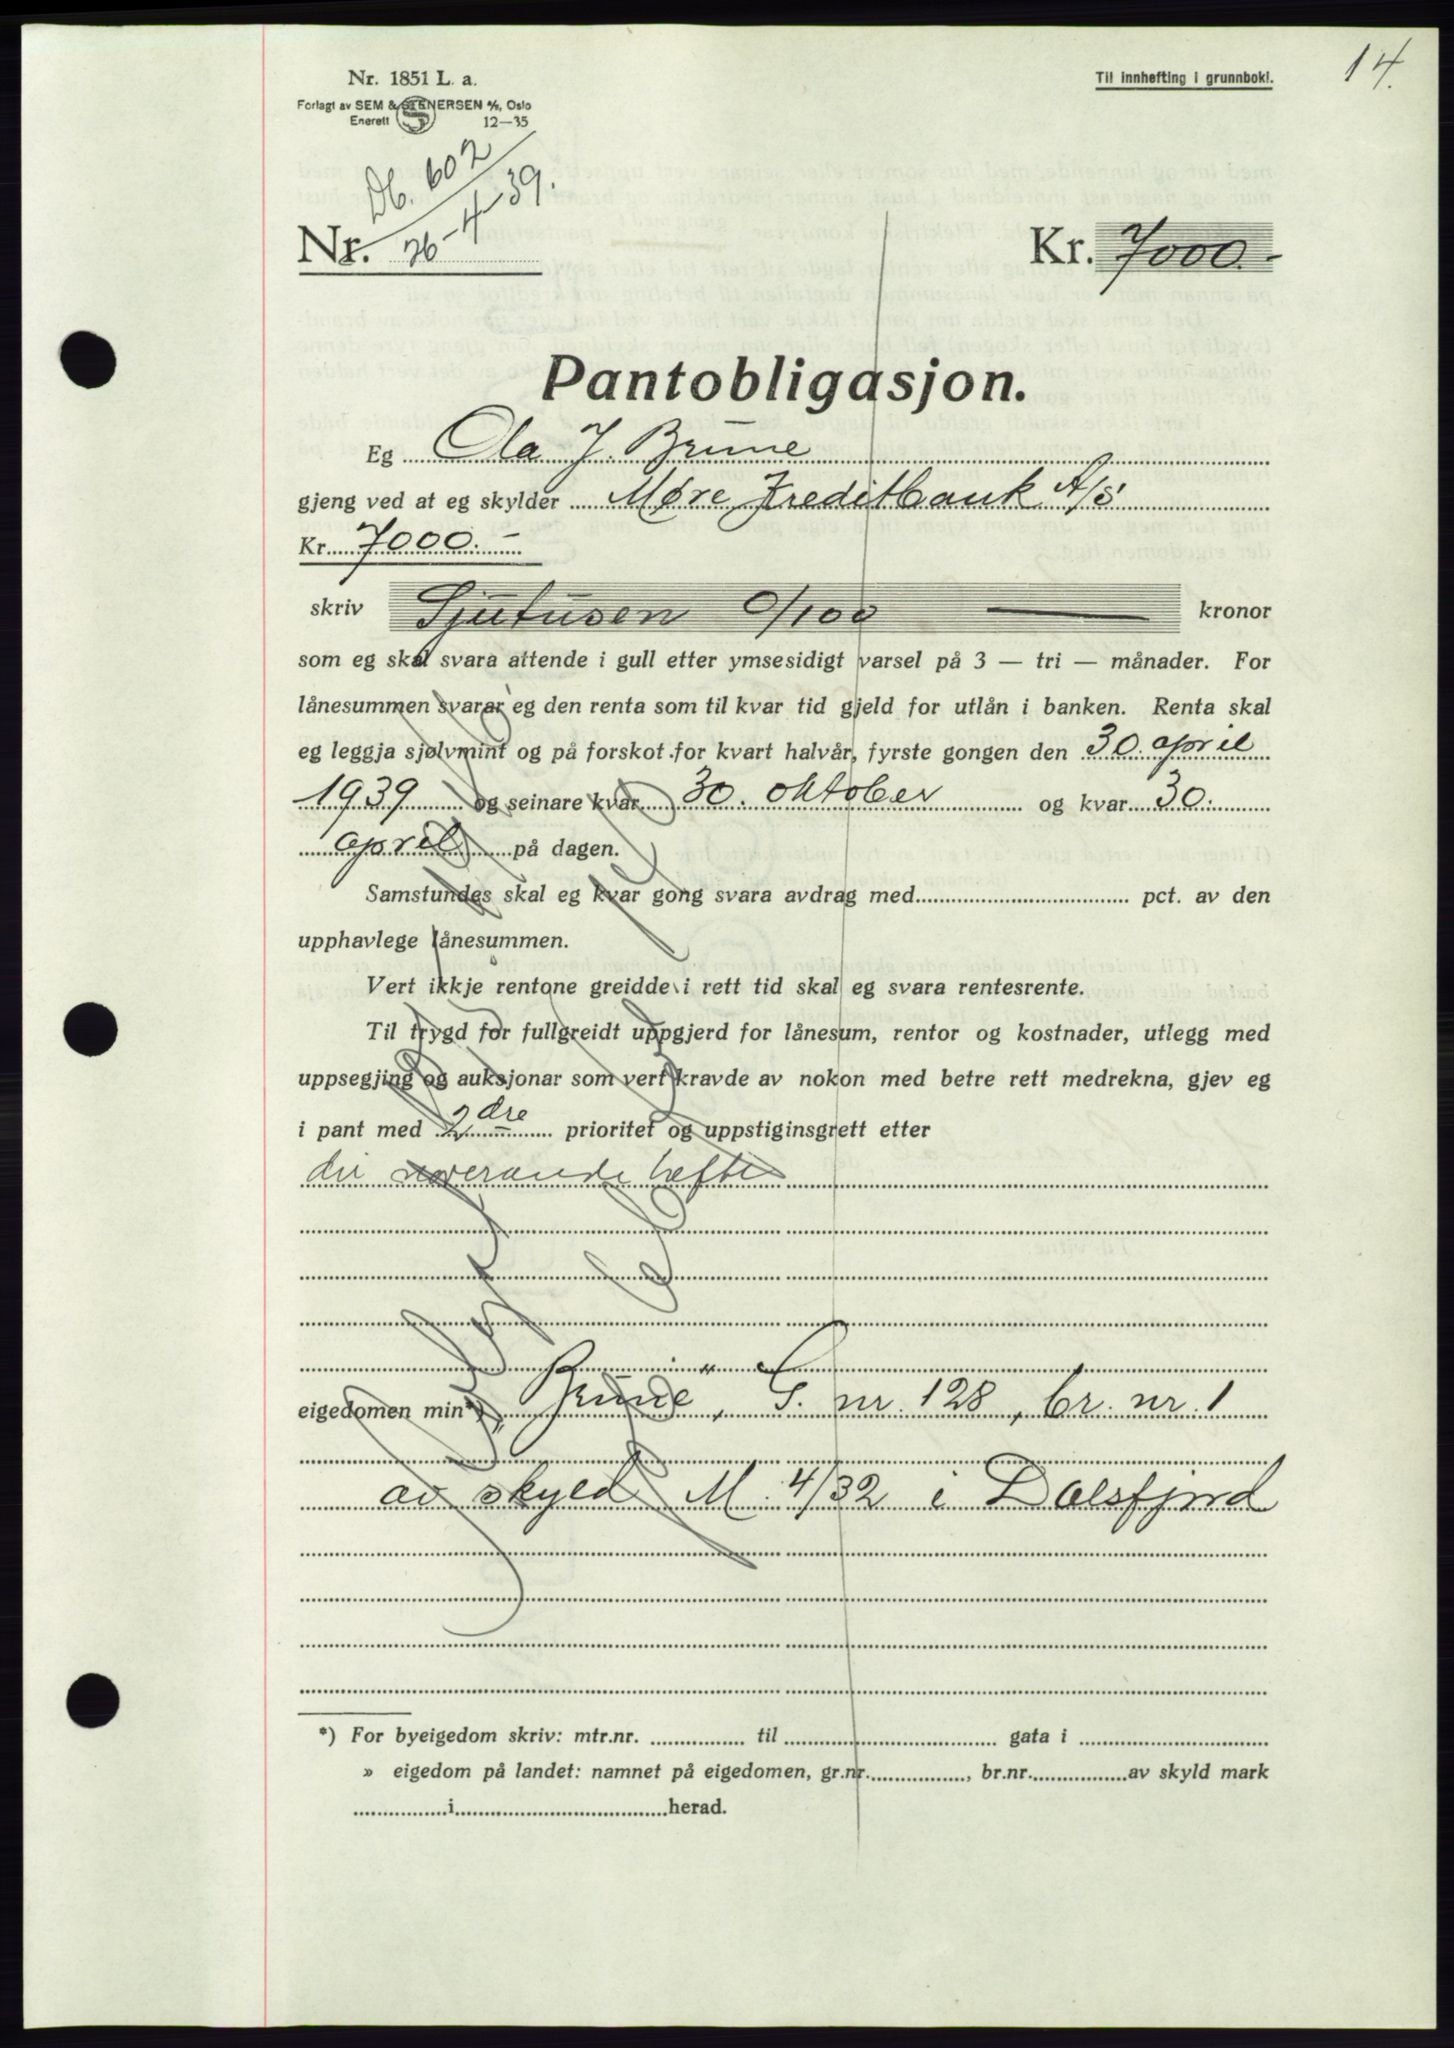 14.
Nr. 1851 L. a.
Til innhefting i grunnbokl.
Forlagt av SEM & STENERSEN A/S, Oslo
Enerett 12—35
Db. 602
Nr. 26-4-39.
Kr. 7000.-
Pantobligasjon.
Eg Ola J. Brune
gjeng ved at eg skylder Møre Kreditbank A/S
Kr. 7000.-
skriv Sjutusen 0/100 kronor
som eg skal svara attende i gull etter ymsesidigt varsel på 3 — tri — månader. For
lånesummen svarar eg den renta som til kvar tid gjeld for utlån i banken. Renta skal
eg leggja sjølvmint og på forskot for kvart halvår, fyrste gongen den 30. april
1939 og seinare kvar 30. oktober og kvar 30.
april på dagen.
Samstundes skal eg kvar gong svara avdrag med pct. av den
upphavlege lånesummen.
Vert ikkje rentone greidde i rett tid skal eg svara rentesrente.
Til trygd for fullgreidt uppgjerd for lånesum, rentor og kostnader, utlegg med
uppsegjing og auksjonar som vert kravde av nokon med betre rett medrekna, gjev eg
i pant med 2dre prioritet og uppstiginsgrett etter
dei noverande hefte
eigedomen min*) „Brune", G. nr. 128, br. nr. 1
av skyld M. 4/32 i Dalsfjord
*) For byeigedom skriv: mtr.nr. til gata i
» eigedom på landet: namnet på eigedomen, gr.nr. , br.nr. av skyld mark
i herad.